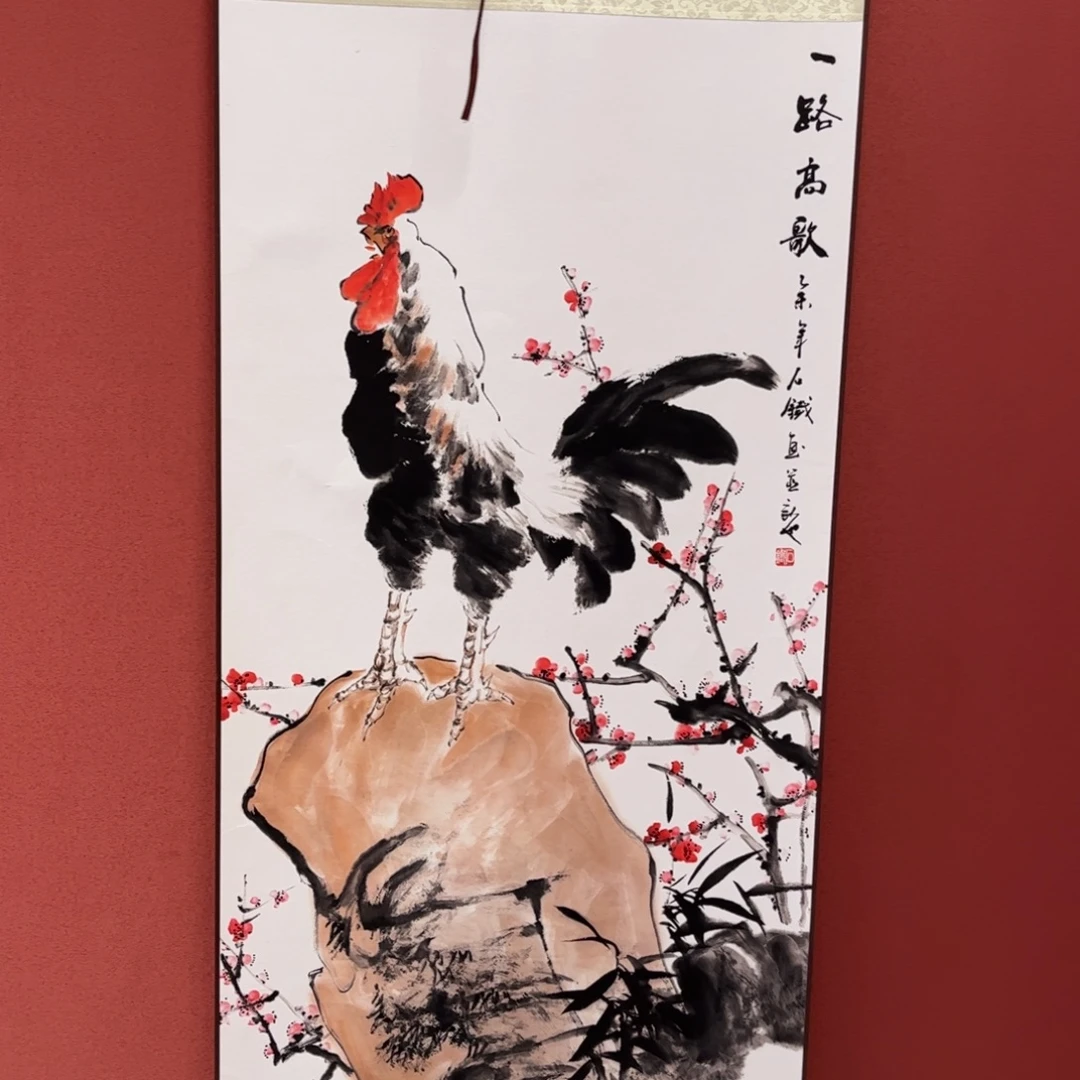 一路高歌
乙未年石鐵画並記